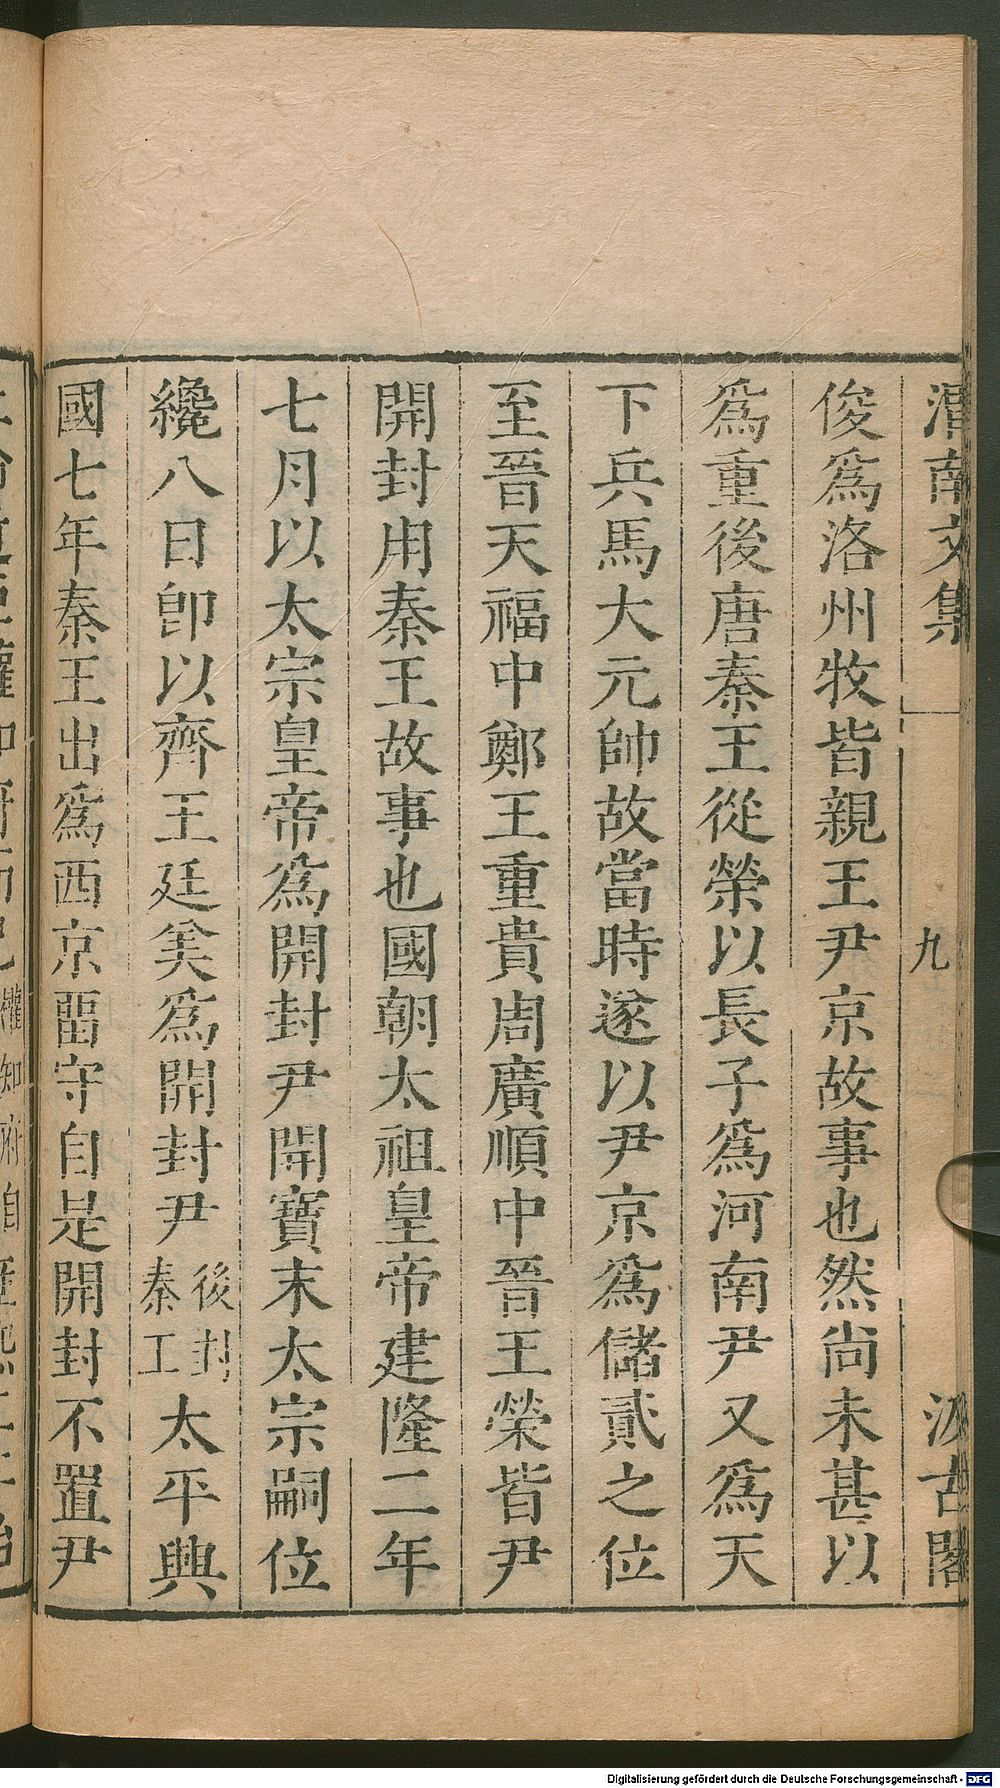 渭南文集 九 汲古閣
俊爲洛州牧皆親王尹京故事也然尚未甚以
爲重後唐秦王從榮以長子爲河南尹又爲天
下兵馬大元帥故當時遂以尹京爲儲貳之位
至晉天福中鄭王重貴周廣順中晉王榮皆尹
開封用秦王故事也國朝太祖皇帝建隆二年
七月以太宗皇帝爲開封尹開寶末太宗嗣位
纔八日卽以齊王廷美爲開封尹後封秦王太平興
國七年秦王出爲西京畱守自是開封不置尹
Digitalisierung gefördert durch die Deutsche Forschungsgemeinschaft - DFG